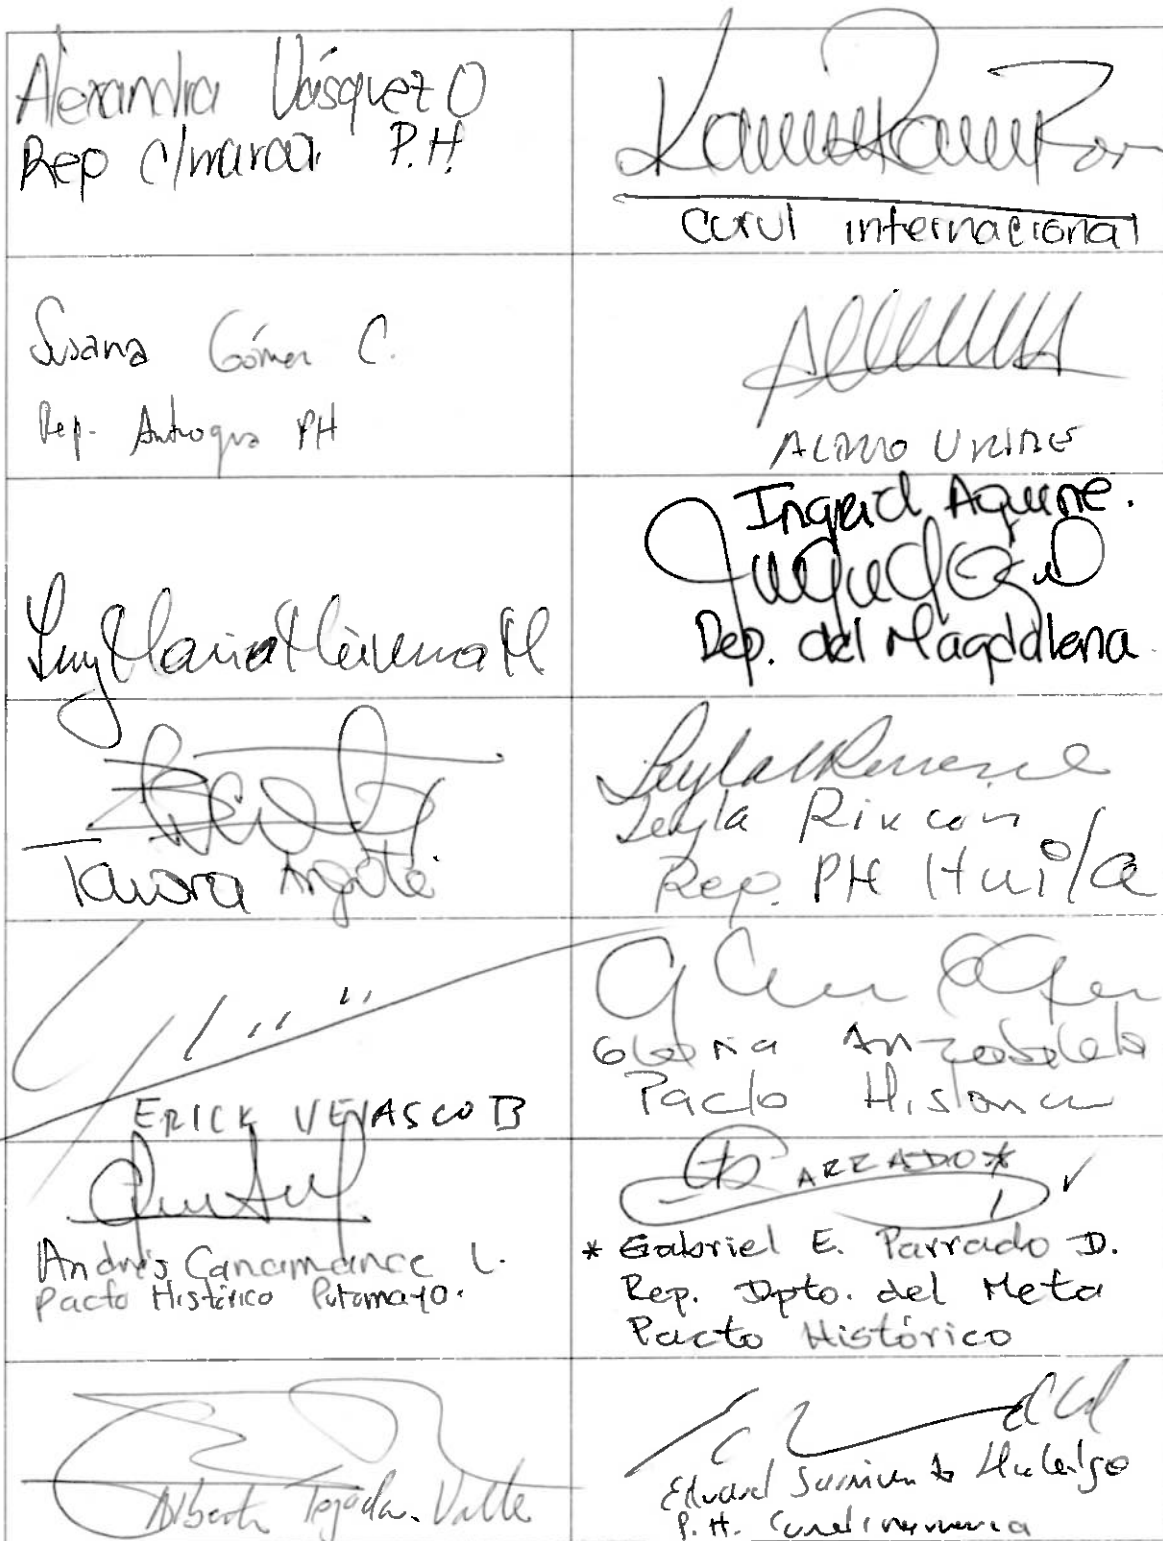 Alexandra Vásquez O
Rep c/marca P.H.
curul internacional
Susana Gómez C.
Rep. Antioquia PH
ALIRIO URIBE
Ingrid Aguirre.
Rep. del Magdalena
Tamara Argote
Leyla Rincón
Rep. PH Huila
ERICK VELASCO B
Gloria Arizabaleta
Pacto Historico
Andrés Cancimance L.
Pacto Histórico Putumayo.
PARRADO*
* Gabriel E. Parrado D.
Rep. Dpto. del Meta
Pacto Histórico
Alberto Tejada. Valle
Eduard Sarmiento Hidalgo
P.H. Cundinamarca